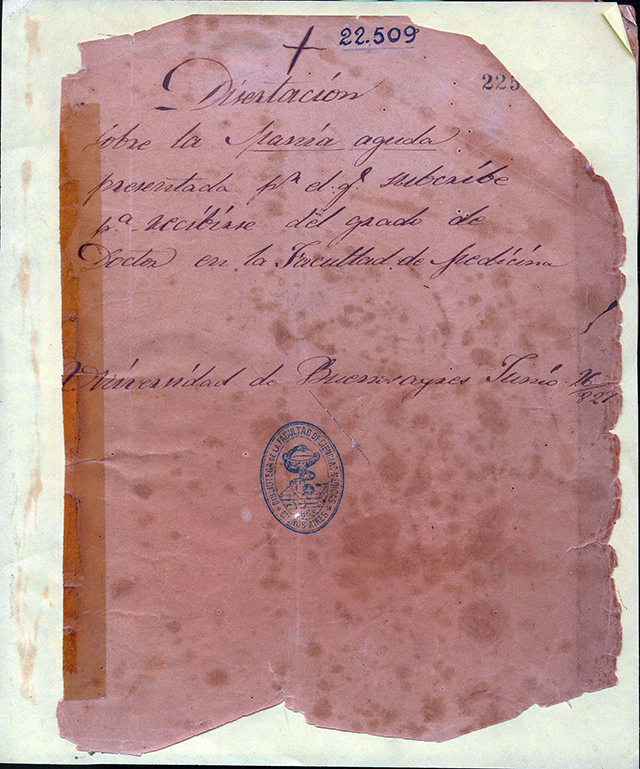 22.509
225
Disertación
sobre la Manía aguda
presentada pr el qe subcribe
pa recibirse del grado de
Doctor en la Facultad de Medicina
Universidad de Buenosayres Junio 26/827
BIBLIOTECA DE LA FACULTAD DE CIENCIAS MEDICAS
BUENOS AIRES